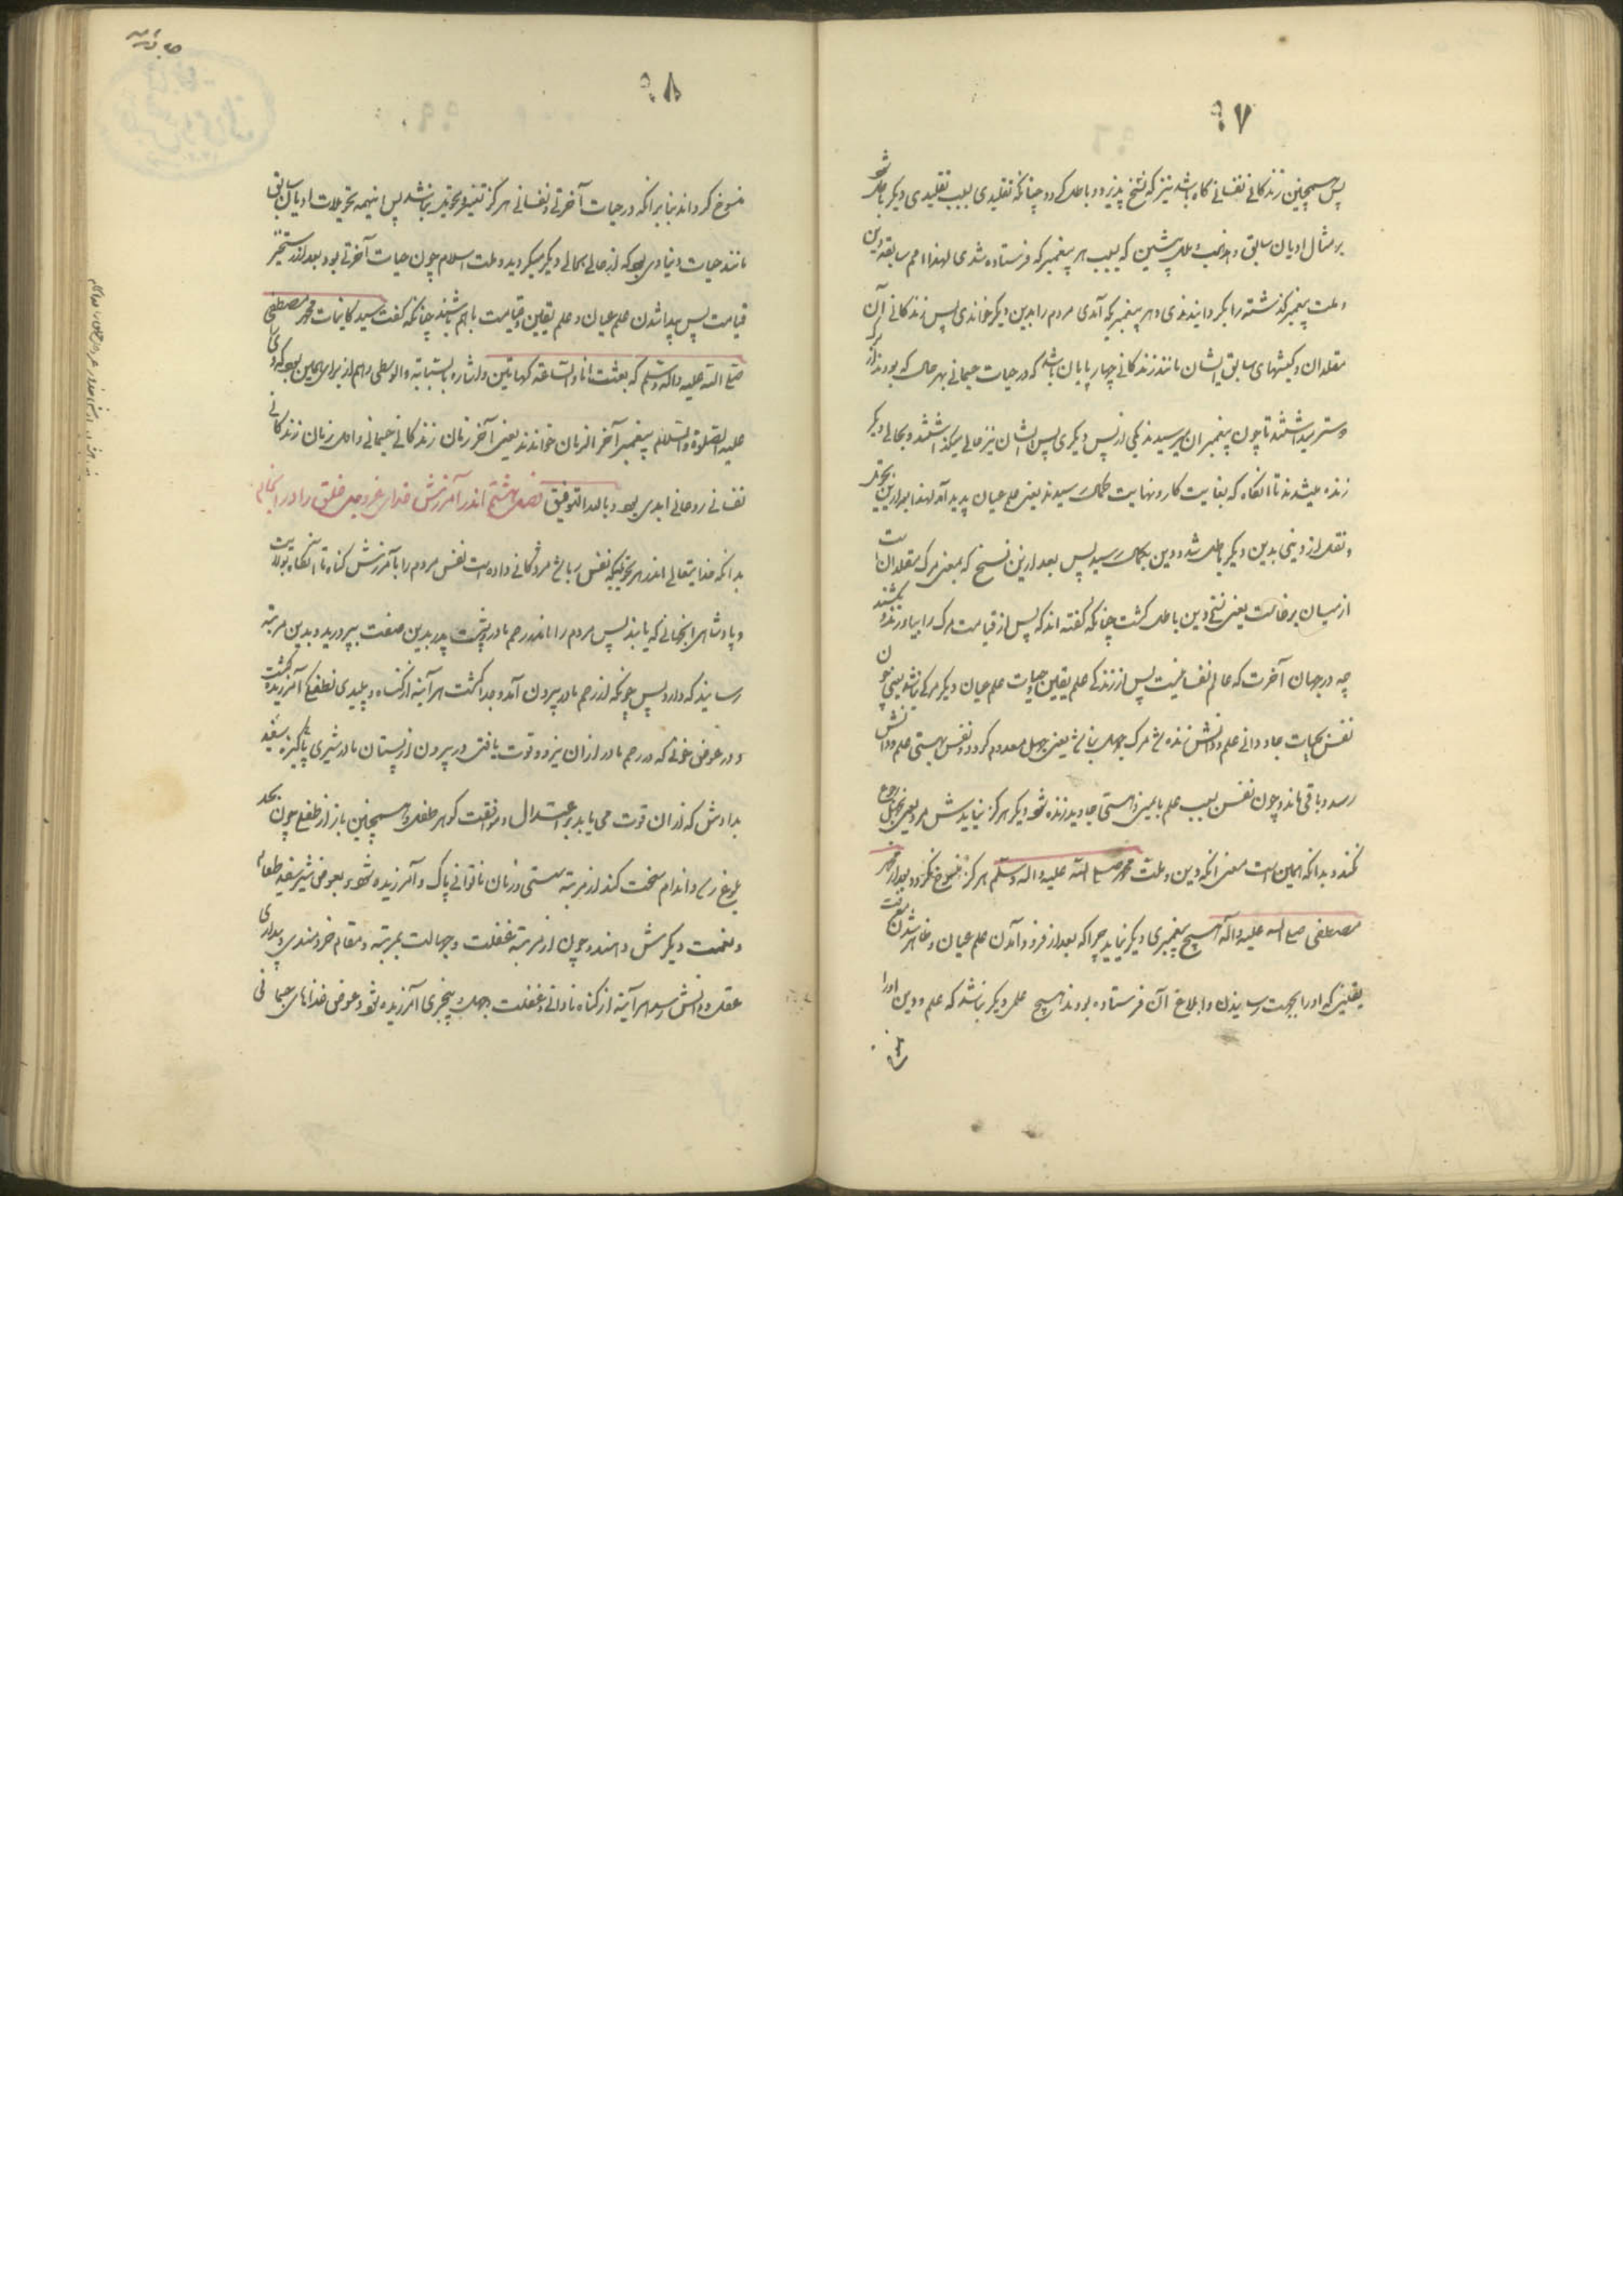 ۹۷
پس همچنین زندگانی نفسانی گاه باشد نیز که نسخ پذیرد و باطل گردد چنانکه تقلیدی بسبب تقلیدی دیگر باطل شود
بر مثال ادیان سابق و مذهب و ملل پیشین که بسبب هر پیغمبر که فرستاده شدی لهذا امم سابقه دین
و ملت پیغمبر گذشته را بگردانیدندی و هر پیغمبریکه آمدی مردم را بدین دیگر خواندی پس زندگانی آن
مقلدان و کیشهای سابق ایشان مانند زندگانی چهارپایان باشد که در حیات جسمانی بهر حال که بودند از مرگ
و ستر بیداشتند تا چون پیغمبران میرسیدند یکی از پس دیگری پس ایشان نیز حالی میگذاشتند و بحالی دیگر
زنده میشدند تا آنگاه که بغایت کار و نهایت کمال رسیدند یعنی علم عیان پدید آمد لهذا بعد ازین تحویل
و نقل از دینی بدین دیگر باطل شد و دین بکمال رسید پس بعد ازین نسخ که بمعنی مرگ مقلدان است
از میان برخاست یعنی نسخ دین باطل گشت چنانکه گفته اند که پس از قیامت مرگ را بیاورند و بکشند
چه در جهان آخرت که عالم نفسانیست پس از زندگی علم یقین و حیات علم عیان دیگر مرگی نباشد یعنی چون
نفس بحیات جاودانی علم و دانش زنده شد مرگ جهل بنماند یعنی جهل معدوم گردد و نفس بهستی علم و دانش
رسد و باقی ماند و چون نفس بسبب علم بامین و هستی جاوید زنده شود دیگر هرگز نبایدش مرد یعنی بجهل رجوع
نکند و بدانکه همین است معنی آنکه دین و ملت محمد صلی الله علیه و آله و سلم هرگز منسوخ نگردد و بعد از محمد
مصطفی صلی الله علیه و آله هیچ پیغمبری دیگر نیاید چراکه بعد از فرود آمدن علم عیان و ظاهر شدن معرفت
یقینی که او را بجهت رسانیدن و ابلاغ آن فرستاده بودند هیچ علمی دیگر نباشد که علم و دین او را
۹۸
منسوخ گرداند بنابرآنکه در حیات آخرتی و نفسانی هرگز تغییر و تحویل نباشد پس اینهمه تحویلات ادیان سابق
مانند حیات دنیاوی بود که از حالی بحالی دیگر میگردید و ملت اسلام چون حیات آخرتی بود و بعد از رستخیز
قیامت پس پیدا شدن علم عیان و علم یقین و قیامت با هم باشند چنانکه گفت سید کاینات محمد مصطفی
صلی الله علیه و آله و سلم که بعثت انا و الساعة کهاتین و اشاره بالسبابة و الوسطی و هم از برای همین بود که وی
علیه الصلوة و السلام پیغمبر آخر الزمان خواندند یعنی آخر زمان زندگانی جسمانی و اول زمان زندگانی
نفسانی روحانی ابدی بود و بالله التوفیق فصل هشتم اندر آمرزش خدای عزوجل خلق را در آنجهانی
بدانکه خدایتعالی اندر هر تحویلیکه نفس را باشد مژدگانی داده است نفس مردم را بآمرزش گناه تا آنگاه بولایت
و پادشاهی آنجهانی که یابند پس مردم را اندر رحم مادر و پشت پدر بدین صفت بپرورید و بدین مرتبه
رسانید که دارد پس چونکه از رحم مادر بیرون آمد و جدا گشت هر آینه از گناه و پلیدی نطفگی آمرزیده گشت
و در عوض خونی که در رحم مادر از آن نیرو و قوت یافتی در بیرون از پستان مادر شیری پاکیزه سفید
بدادش که از آن قوت می یابد بر اعتدال و موافقت گوهر طفلی و همچنین باز از طفلی چون بحد
بلوغ رسد و اندام سخت کند از مرتبه سستی و زمان ناتوانی پاک و آمرزیده شود و بعوض شیر سفید طعام
و نعمت دیگرش دهند و چون از مرتبه غفلت و جهالت بمرتبه و مقام خردمندی و بیداری
عقل و دانش رسد هر آینه از گناه نادانی و غفلت و جهل و بیخبری آمرزیده شود و عوض غذاهای جسمانی